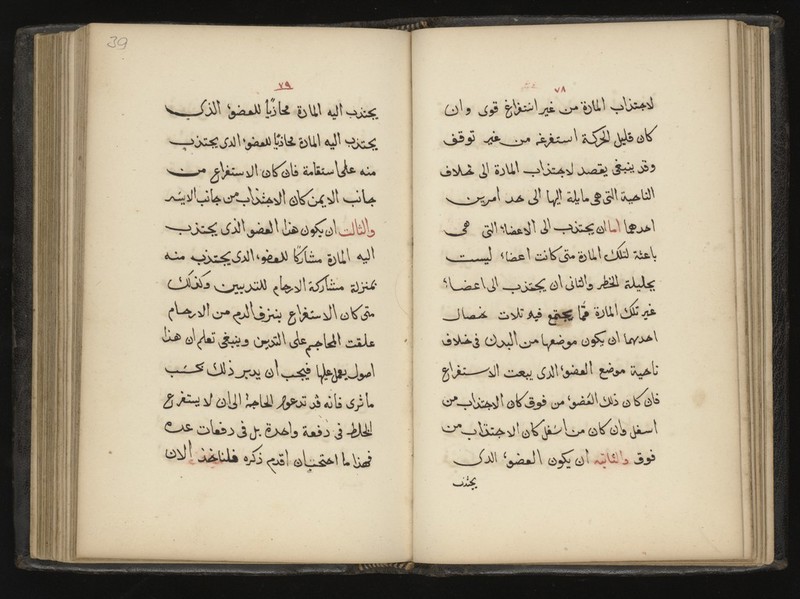 ٧٨
لاجتذاب المادة من غير استفراغ قوى وان
كان قليل الحركة استفرغ من غير توقف
وقد ينبغى يقصد لاجتذاب المادة الى خلاف
الناحية التى هى مايلة اليها الى حد امرين
احدهما اما ان يجتذب الى الاعضاء التى هى
باعثة لتلك المادة متى كانت اعضاء ليست
بجليلة الخطر والثانى ان يجتذب الى اعضاء
غير تلك المادة مما يجتمع فيه ثلاث خصال
احديهما ان يكون موضعها من البدن فى خلاف
ناحية موضع العضو الذى يبعث الاستفراغ
فان كان ذلك العضو من فوق كان الاجتذاب من
اسفل وان كان من اسفل كان الاجتذاب من
فوق والثانيه ان يكون العضو الذى
يجتذب
39
٧٩
يجتذب اليه المادة محاذيًا للعضو الذى
يجتذب اليه المادة محاذيًا للعضو الذى يجتذب
منه على استقامة فان كان الاستفراغ من
جانب الايمن كان الاجتذاب من جانب الايسر
والثالث ان يكون هذا العضو الذى يجتذب
اليه المادة مشاركًا للعضو الذى يجتذب منه
بمنزلة مشاركة الارحام للثديين وكذلك
متى كان الاستفراغ بنزف الدم من الارحام
علقت المحاجم على الثديين وينبغى تعلم ان هذا
اصول يعمل عليها فيجب ان يدبر ذلك بحسب
ما ترى فانه قد تدعو الحاجة الى ان لا يستفرغ
الخلط فى دفعة واحدة بل فى دفعات عده
فهذا ما احتجت ان اقدم ذكره فلناخذ الان